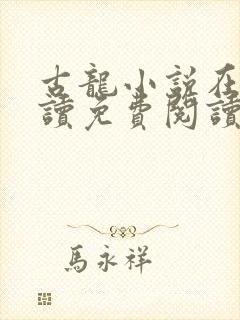 古龍小說在
讀免費閱讀
馬永祥